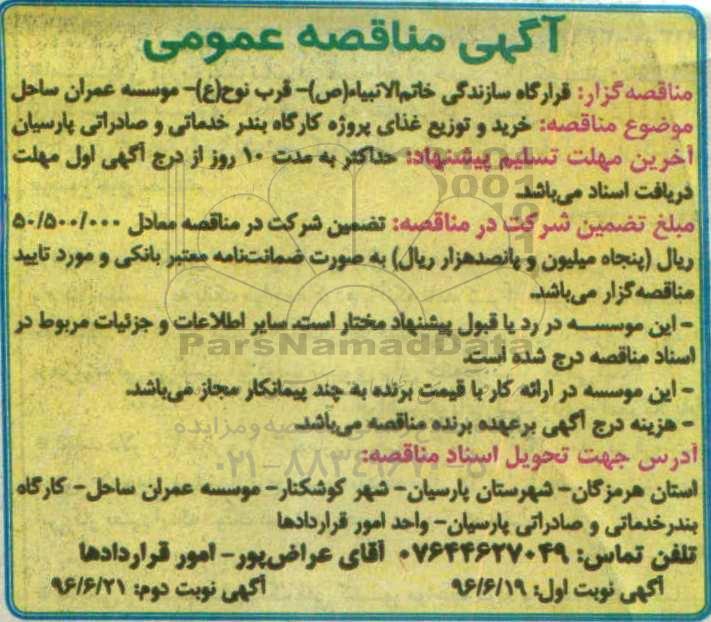 آگهی مناقصه عمومی
مناقصه‌گزار: قرارگاه سازندگی خاتم‌الانبیاء(ص)- قرب نوح(ع)- موسسه عمران ساحل
موضوع مناقصه: خرید و توزیع غذای پروژه کارگاه بندر خدماتی و صادراتی پارسیان
آخرین مهلت تسلیم پیشنهاد: حداکثر به مدت ۱۰ روز از درج آگهی اول مهلت
دریافت اسناد می‌باشد.
مبلغ تضمین شرکت در مناقصه: تضمین شرکت در مناقصه معادل ۵۰/۵۰۰/۰۰۰
ریال (پنجاه میلیون و پانصدهزار ریال) به صورت ضمانت‌نامه معتبر بانکی و مورد تایید
مناقصه‌گزار می‌باشد.
- این موسسه در رد یا قبول پیشنهاد مختار است. سایر اطلاعات و جزئیات مربوط در
ParsNamadData
اسناد مناقصه درج شده است.
- این موسسه در ارائه کار با قیمت برنده به چند پیمانکار مجاز می‌باشد.
- هزینه درج آگهی برعهده برنده مناقصه می‌باشد.
آدرس جهت تحویل اسناد مناقصه:
۰۲۱-۸۸۳۴۹۶۷۰-۵
استان هرمزگان- شهرستان پارسیان- شهر کوشکنار- موسسه عمران ساحل- کارگاه
بندرخدماتی و صادراتی پارسیان- واحد امور قراردادها
تلفن تماس: ۰۷۶۴۴۶۲۷۰۴۹ آقای عراض‌پور- امور قراردادها
آگهی نوبت اول: ۹۶/۶/۱۹ آگهی نوبت دوم: ۹۶/۶/۲۱